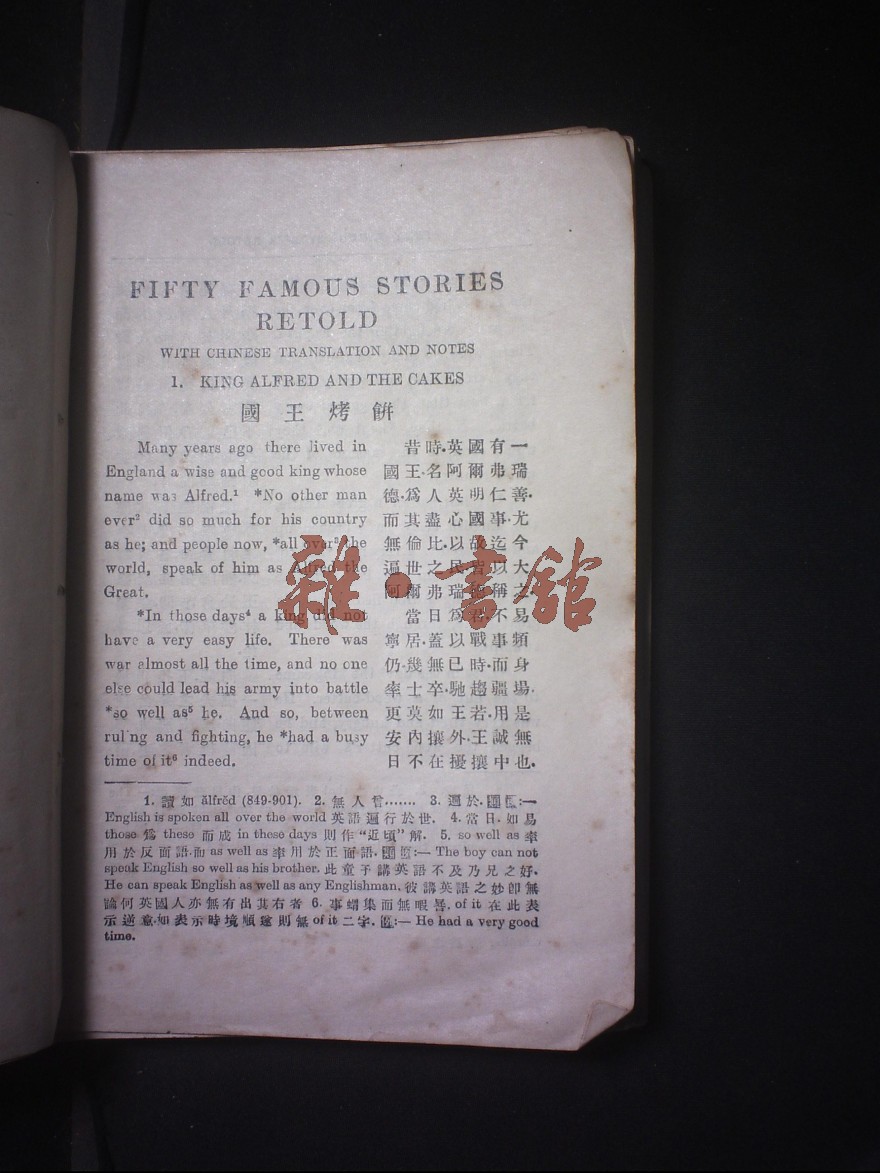 FIFTY FAMOUS STORIES
RETOLD
WITH CHINESE TRANSLATION AND NOTES
1. KING ALFRED AND THE CAKES
國王烤餅
Many years ago there lived in
England a wise and good king whose
name was Alfred.¹ *No other man
ever² did so much for his country
as he; and people now, *all over³ the
world, speak of him as Alfred the
Great.
*In those days⁴ a king did not
have a very easy life. There was
war almost all the time, and no one
else could lead his army into battle
*so well as⁵ he. And so, between
ruling and fighting, he *had a busy
time of it⁶ indeed.
昔時.英國有一
國王.名阿爾弗瑞
德.爲人英明仁善.
而其盡心國事.尤
無倫比.以故迄今
遍世之民皆以大
阿爾弗瑞德稱之
當日爲君.不易
寧居.蓋以戰事頻
仍.幾無已時.而身
率士卒.馳趨疆場.
更莫如王若.用是
安內攘外.王誠無
日不在擾攘中也.
1. 讀如 ălfrĕd (849-901). 2. 無人曾....... 3. 遍於.:—
English is spoken all over the world 英語遍行於世. 4. 當日.如易
those 爲 these 而成 in these days 則作“近頃”解. 5. so well as 率
用於反面語.而 as well as 率用於正面語.:— The boy can not
speak English so well as his brother. 此童子講英語不及乃兄之好.
He can speak English as well as any Englishman. 彼講英語之妙卽無
論何英國人亦無有出其右者 6. 事蝟集而無暇晷. of it 在此表
示逆意.如表示時境順遂則無 of it 二字.:— He had a very good
time.
雜·書館